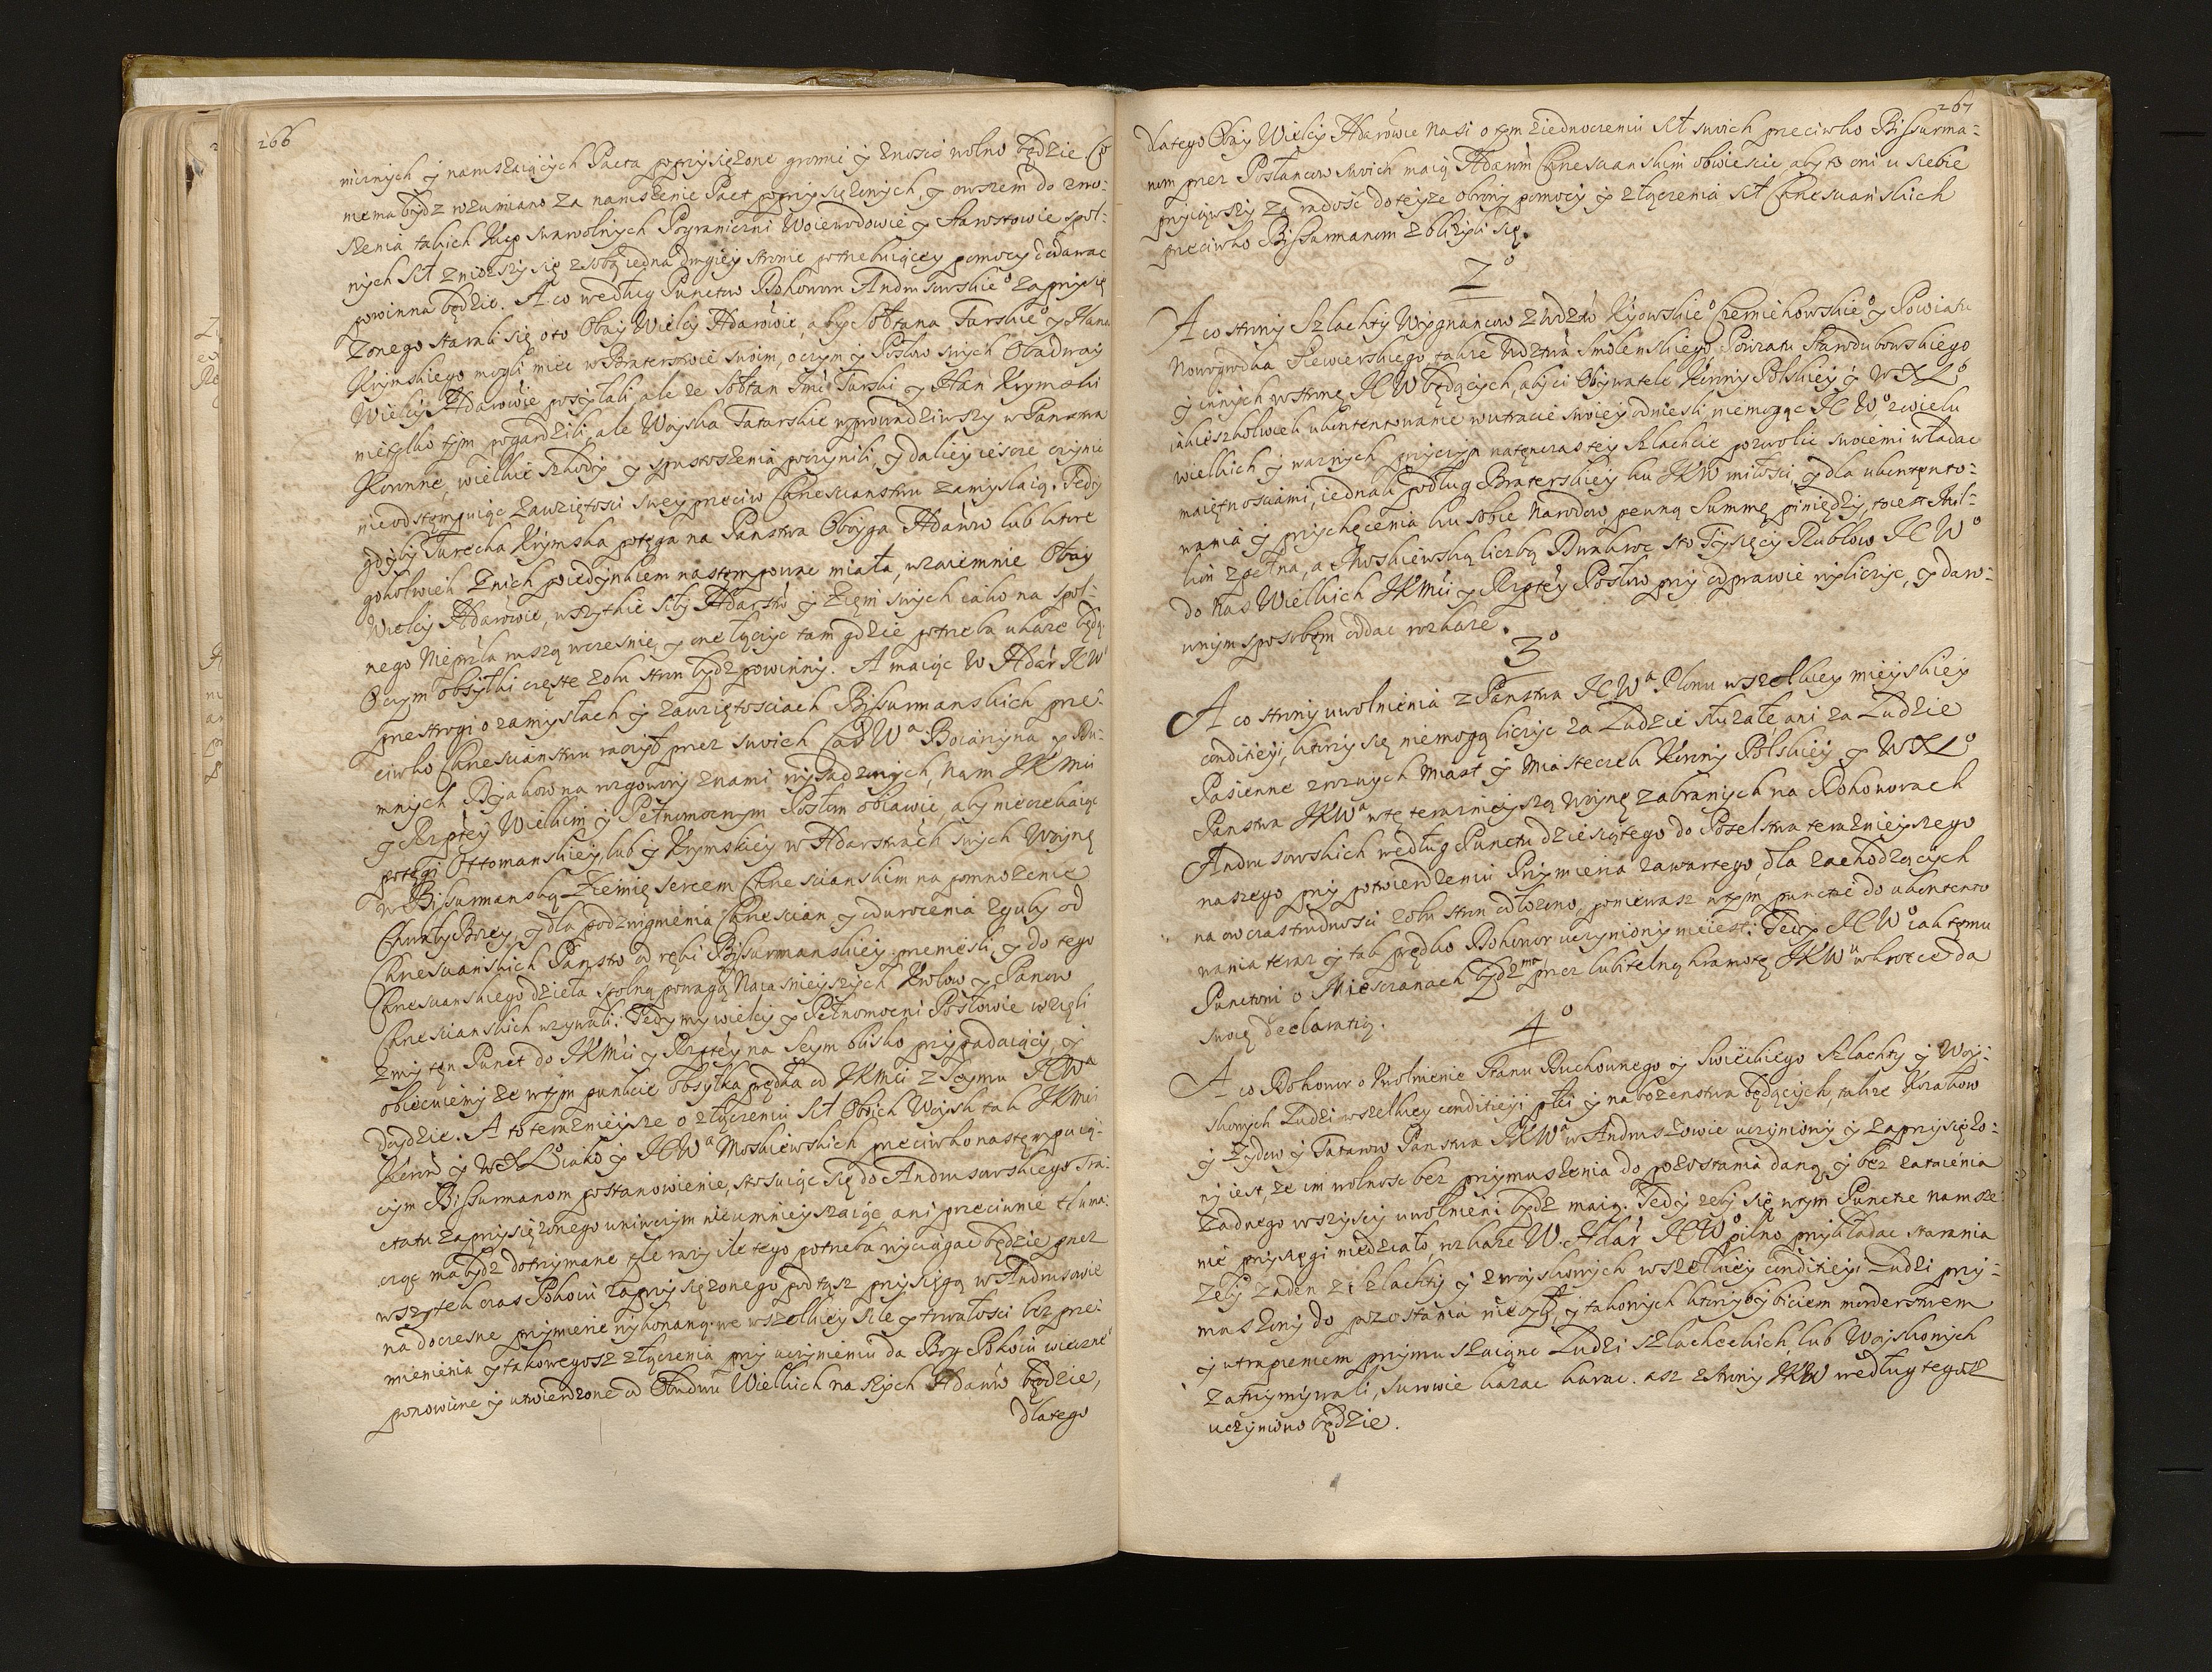 266
micznych y naruszaiących Pacta poprzysiężone gromić y znosić wolno będzie Co
niema bydz rozumiano za naruszenie Pact poprzysiężonych, y owszem do zno-
szenia takich Kup swawolnych Pograniczni Woiewodowie y Starostowie spol-
nych sił zniozszy się z sobą iedna drugiey stronie potrzebuiącey pomocy dodawac
powinna będzie. A co według Punctow Dohoworu Andruszowskieo zaprzysię
żonego starali się o to Obay Wielcy Hdarowie, aby Sołtana Turskieo y Hana
Krymskiego mogli miec w Braterstwie swoim, o czym y Posłow swych Obadway
Wielcy Hdarowie posyłali, ale ze Sołtan Imć Turski y Han Krymski
nietylko tym pogardzili, ale Woyska Tatarskie wprowadziwszy w Panstwa
Koronne, wielkie szkody y spustoszenia poczynili, y daliey ieszcze czynic
nieodstempuiąc zawziętosci swey przeciw Chrzescianstwu zamyslaią. Tedy
gdyby Turecka Krymska potęga na Panstwa Oboyga Hdarow lub ktore
gokolwiek z nich poiedynkiem nastempowac miała, wzaiemnie Obay
Wielcy Hdarowie, wszytkie siły Hdarstw y Ziem swych iako na spol-
nego Nieprzla ruszą wczesnie, y one łączyc tam gdzie potrzeba ukaze będą
O czym obsyłki częste z obu stron bydz powinny. A maiąc W Hdar JCWo
przestrogi o zamysłach y zawziętosciach Bissurmanskich prze-
ciwko Chrzescianstwu raczył przez swoich Car Wa Boiarzyna y Du-
mnych Dyakow na rozgowory z nami wysadzonych, Nam JKMci
y Rzptey Wielkim y Pełnomocnym Posłom obiawic, aby nieczekaiąc
potęgi Ottomanskiey, lub y Krymskiey w Hdarstwach swych Woynę
w Bissurmanską Ziemię sercem Chrzescianskim na pomnozenie
Chwały Bozey, y dla podzwignienia Chrzescian y odwrocenia zguby od
Chrzescianskich Panstw od ręki Bissurmanskiey przeniesli, y do tego
Chrzescianskiego dzieła spolną powagą Naiasnieyszych Krolow y Panow
Chrzescianskich wzywali. Tedy my wielcy y Pełnomocni Posłowie wzięli
z my ten Punct do JKMci y Rzptey na Seym blisko przypadaiący, y
obiecuiemy ze w tym punkcie Obsyłka prędka od JKMci z Seymu JCWa
doydzie. A to teraznieysze o złączeniu sił Oboich Woysk tak JKMci
Koron y WXLo iako y JCWa Moskiewskich przeciwko następuią-
cym Bissurmanom postanowienie, stosuiąc się do Andruszowskiego Tra-
ctatu zaprzysiężonego uniwczym nieumnieyszaiąc ani przeciwnie tłuma-
cząc ma bydz dotrzymane tyle razy ile tego potrzeba wyciągac będzie przez
wszytek czas Pokoiu zaprzysiężonego, pod tąsz przysięgą w Andruszowie
na doczesne przymierze wykonaną we wszelkiey sile y trwałosci bez prze-
mienienia y takowegosz złączenia przy uczynieniu da Bog Pokoiu wieczneo
ponowione y utwierdzone od Obudwu Wielkich naszych Hdarow będzie,
dlatego
267
dlatego Obay Wielcy Hdarowie Nasi o tym ziednoczeniu sił swoich przeciwko Bissurma-
nom przez Posłancow swoich maią Hdarom Chrzescianskim obwiescic, aby to oni u siebie
przyiąwszy za radosc do teyze obrony pomocy y złączenia sił Chrzescianskich
przeciwko Bissurmanom zbliżyli się.
2o
A co strony Szlachty Wygnancow z Wdztw Kijowskieo Czerniehowskieo y Powiatu
Nowogrodka Siewierskiego, takze Wdztwa Smolenskiego Powiatu Starodubowskiego
y innych w stronę JCW będących, aby ci Obywatele Korony Polskiey y WXLo
iakieszkolwiek ukontentowanie w utracie swoiey odniesli, niemogąc JCWo z wielu
wielkich y waznych przyczyn natenczas tey szlachcie pozwolic swoiemi władac
maiętnosciami, iednak podług Braterskiey ku JKW miłosci, y dla ukontento-
wania y przychęcenia ku sobie Narodow, pewną Summę pieniędzy, to iest Mil-
lion złotna, a Moskiewską liczbą Dwakroc sto Tysięcy Rublow JCWo
do Nas Wielkich JKMci y Rzptey Posłow przy odprawie wyliczyc, y daro-
wnym sposobem oddac rozkaze.
3o
A co strony uwolnienia z Panstwa JCWa Plonu wszelkiey mieyskiey
conditiey, ktorzy się niemogą liczyc za Ludzie słuzałe ani za Ludzie
Pasienne z roznych Miast y Miasteczek Korony Polskiey y WXLo
Panstwa JKWa w tę teraznieyszą woynę zabranych na Dohoworach
Andruszowskich według Punctu dziesiątego do Poselstwa teraznieyszego
naszego przy potwierdzeniu Przymierza zawartego, dla zachodzących
na ow czas trudnosci z obu stron odłożono, poniewasz w tym punctcie do ukontento
wania teraz y tak prędko Dohowor uczyniony nieiest. Tedy JCWo iak temu
Punctowi o Miesczanach bydz ma, przez lubitelną hramotę JKWu w krotce da
swoię declaratią.
4o
A co Dohowor o Uwolnienie Stanu Duchownego y Swieckiego Szlachty y Woy-
skowych Ludzi wszelkiey conditieyi płci y nabozenstwa będących, takze Kozakow
y Zydow y Tatarow Panstwa JKWa w Andruszowie uczyniony y zaprzysiężo-
ny iest, ze im wolnosc bez przymuszenia do pozostania daną y bez zataienia
zadnego wszyscy uwolnieni bydz maią. Tedy zeby się w tym Puncte narusze
nie przysięgi niedziało, rozkaze W. Hdar JCWo pilno przykładac starania
zeby zaden z szlachty y z woyskowych wszelkiey conditieyi Ludzi przy-
muszony do pozostania nie był, y takowych ktorzyby biciem morderstwem
y utrapieniem przymuszaiąc Ludzi szlacheckich, lub Woyskowych
zatrzymywali, surowie kazac karac. asz z strony JKW według tegosz
uczyniono będzie.